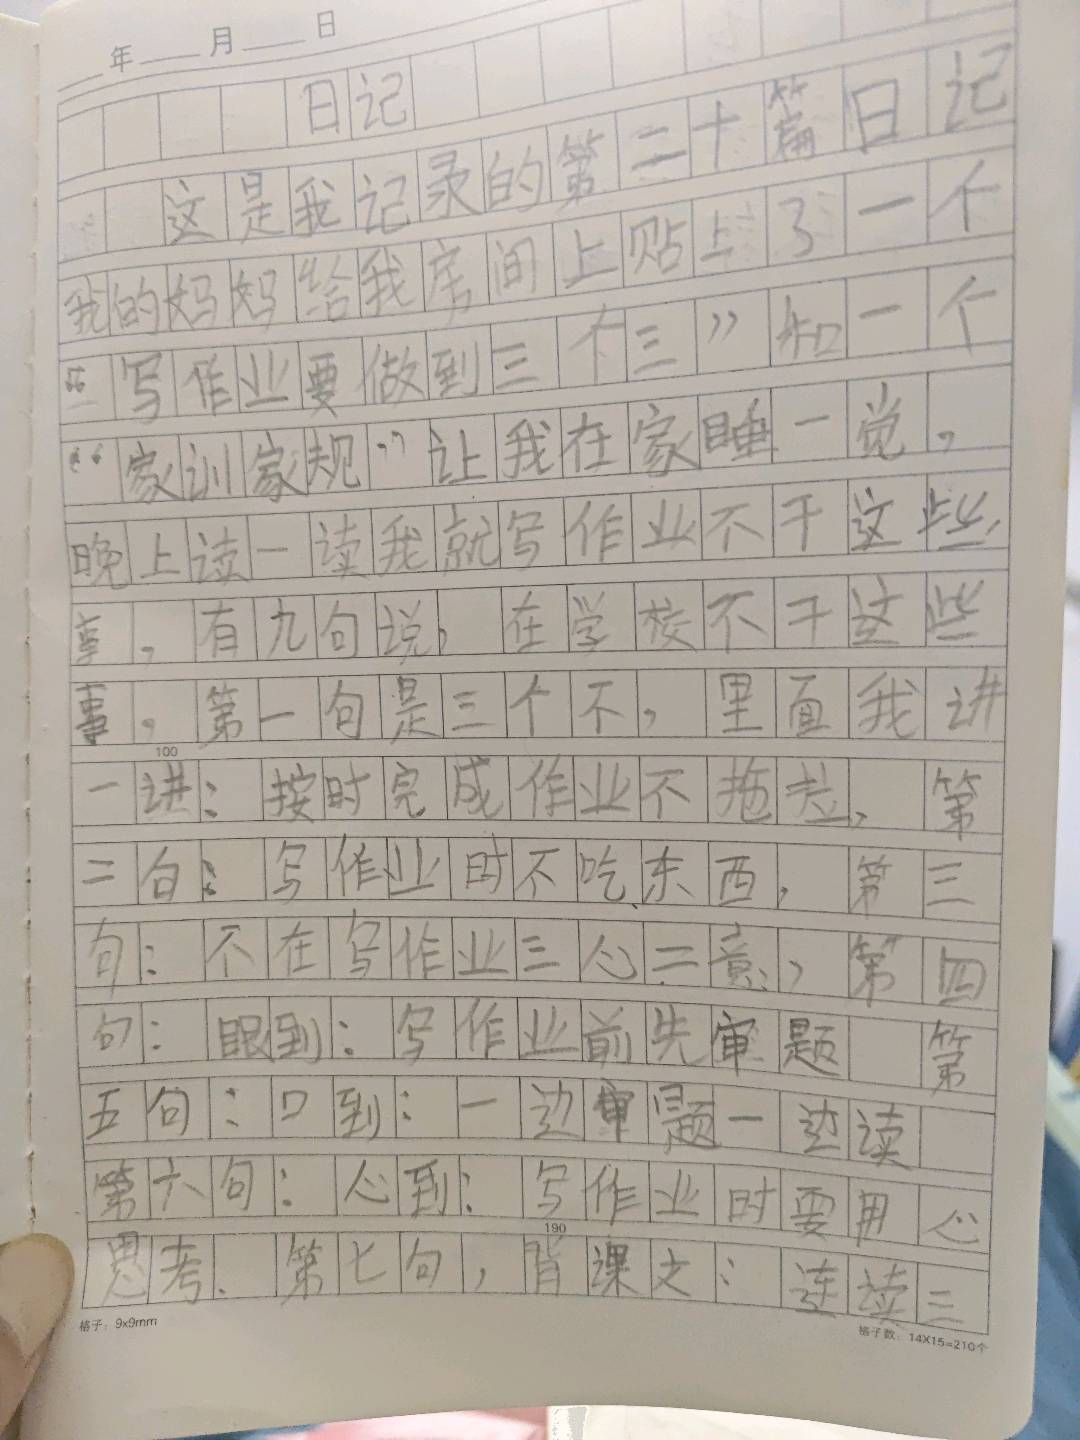 年 月 日
日记
这是我记录的第二十篇日记
我的妈妈给我房间上贴上了一个
“写作业要做到三个三”和一个
“家训家规”让我在家睡一觉，
晚上读一读我就写作业不干这些
事，有九句说，在学校不干这些
事，第一句是三个不，里面我讲
一讲：按时完成作业不拖拉，第
二句：写作业时不吃东西，第三
句：不在写作业三心二意，第四
句：眼到：写作业前先审题 第
五句：口到：一边审题一边读
第六句：心到：写作业时要用心
思考．第七句，背课文：连读三
100
190
格子：9x9mm
格子数：14X15=210个